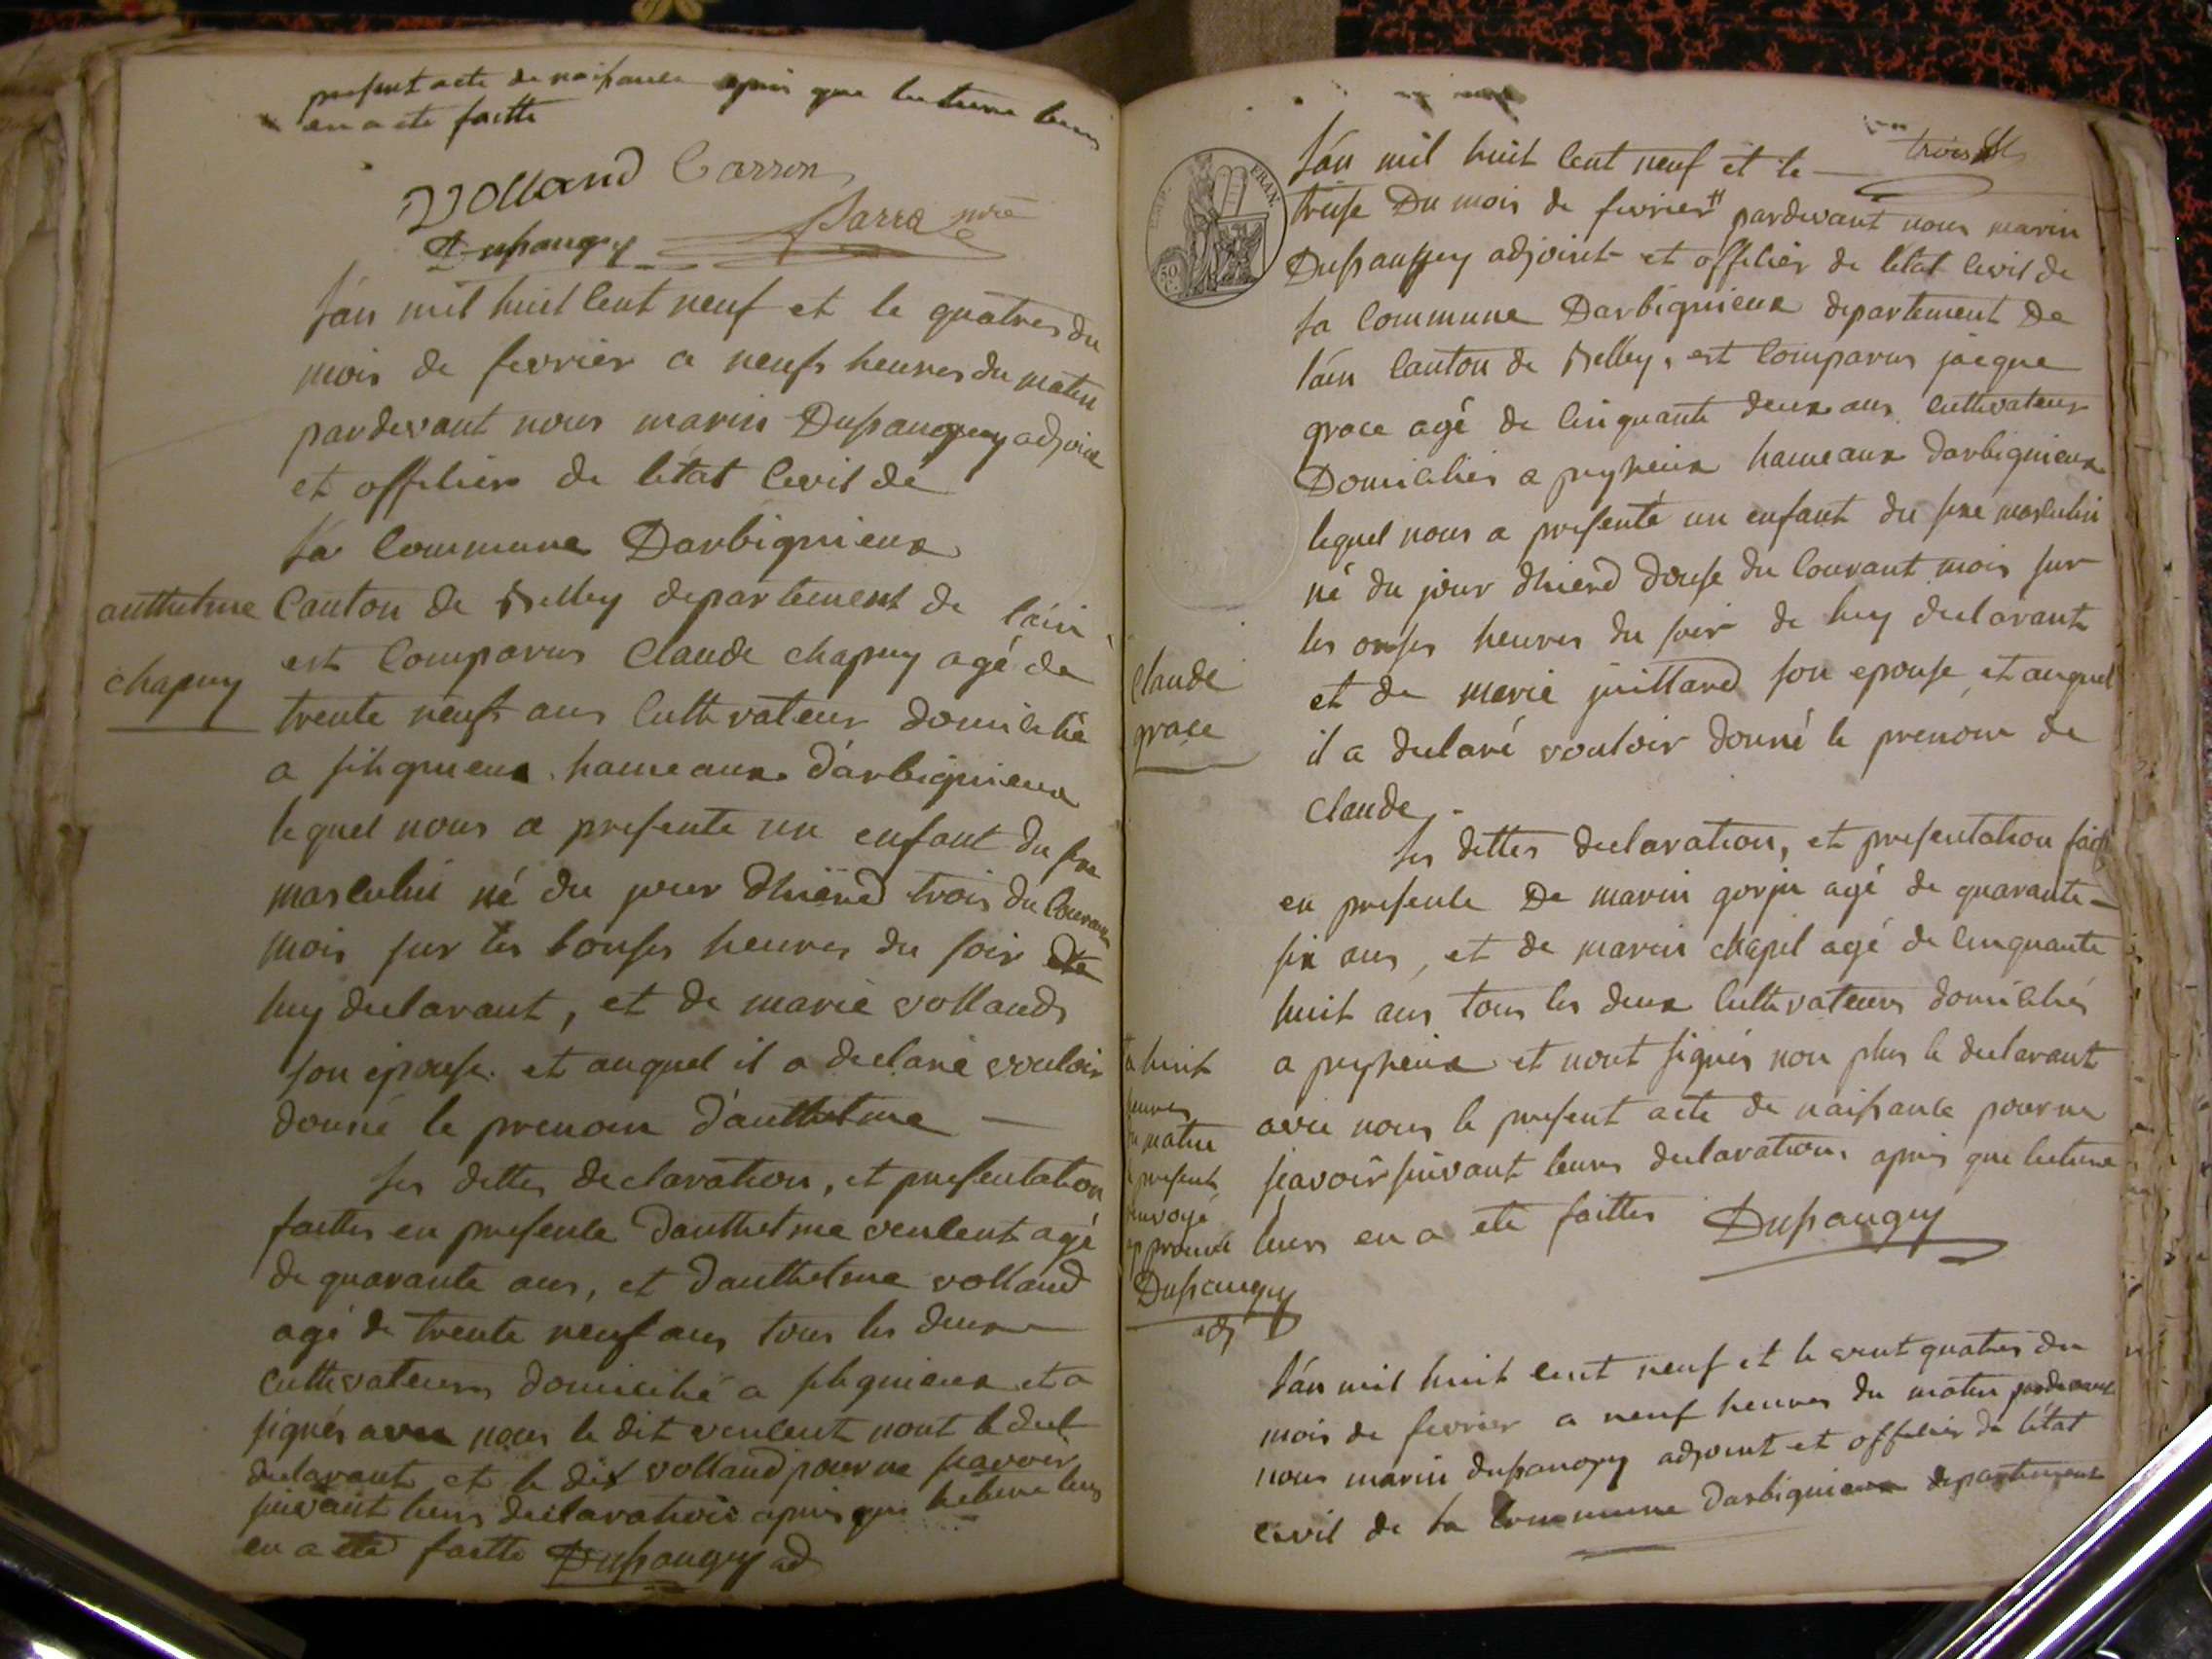 present acte de naissance apres que lecture leurs
en a ete faitte
Volland Carron
Dupaugey Sarra
Lán mil huit Cent neuf et le quatres du
mois de fevrier a neufs heures du matin
pardevant nous marin Dupaugey adjoint
et officiers de létat Civil de
la Commune Darbignieux
anthelme
chapuy
Canton de Belley departement de láin
est Comparus Claude chapuy agé de
trente neufs ans Cultivateur domicilié
a silignieux hameaux dárbignieux
lequel nous a presente un enfant du sexe
masculin né du jour dhierd trois du Courant
mois sur les honses heures du soir de
luy declarant, et de marie vollands
son épouse. et auquel il a declaré vouloir
donné le prenom dánthelme
les dittes declaration, et presentation
faittes en presence danthelme venlent agé
de quarante ans, et danthelme volland
agé de trente neuf ans tous les deux
Cultivateurs domicilié a silignieux et a
signés avec nous le dit venlent nont le decl
declarant et le dit volland pour ne scavoir
suivant leurs declaration apres que lecture leurs
en a ete faitte Dupaugey ad
trois
Lán mil huit Cent neuf et le
EMP. FRAN.
50 C.
treise Du mois de fevrier # pardevant nous marin
Dupaugey adjoint et officier de létat Civil de
la Commune Darbignieux departement De
láin Canton de Belley, est Comparus jacque
grace agé de Cinquante deux ans Cultivateur
Domiciliés a peyzieux hameaux darbignieux
lequel nous a presenté un enfant du sexe masculin
né du jour dhierd douse du Courant mois sur
les onses heures du soir de luy declarant
et de marie juillard son epouse, et auquel
il a declaré vouloir donné le prenom de
Claude.
Claude
grace
les dittes declaration, et presentation faitte
en presence De marin gorju agé de quarante-
six ans, et de marin chapel agé de Cinquante
huit ans tous les deux Cultivateurs domiciliés
a peyzieux et nont signés non plus le declarant
avec nous le present acte de naissance pour ne
scavoir suivant leurs declarations apres que lecture
leurs en a ete faittes Dupaugey
# a huit
heures
du matin
le present
renvoye
approuvé
Dupaugey
adj
Lán mil huit cent neuf et le vint quatres du
mois de fevrier a neuf heures du matin pardevant
nous marin dupaugey adjoint et officier de létat
civil de la Commune darbignieux departement